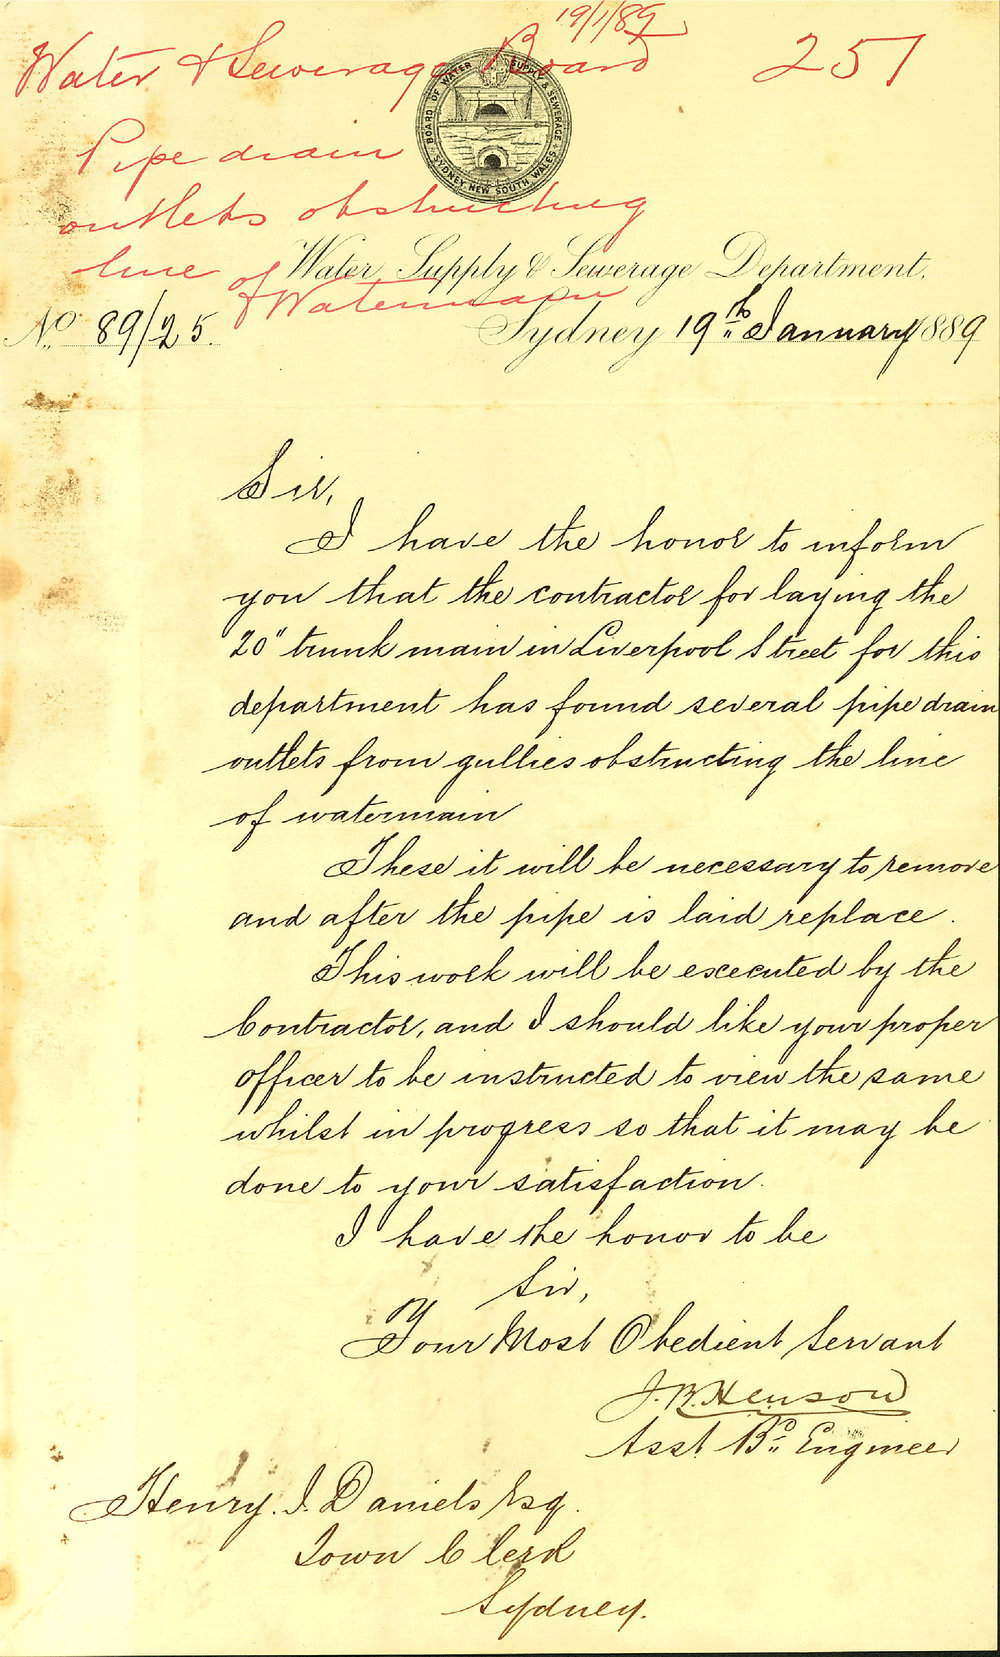 19/1/89
Water & Sewerage Board 251
BOARD OF WATER SUPPLY & SEWERAGE
SYDNEY, NEW SOUTH WALES
Pipe drain
outlets obstructing
line of
Water Supply & Sewerage Department.
& Watermain
No. 89/25.
Sydney 19th January 1889
Sir,
I have the honor to inform
you that the contractor for laying the
20" trunk main in Liverpool Street for this
department has found several pipe drain
outlets from gullies obstructing the line
of watermain
These it will be necessary to remove
and after the pipe is laid replace.
This work will be executed by the
Contractor, and I should like your proper
officer to be instructed to view the same
whilst in progress so that it may be
done to your satisfaction.
I have the honor to be
Sir,
Your Most Obedient Servant
J.B. Henson
Asst Bd. Engineer
Henry. J. Daniels Esq.
Town Clerk
Sydney.